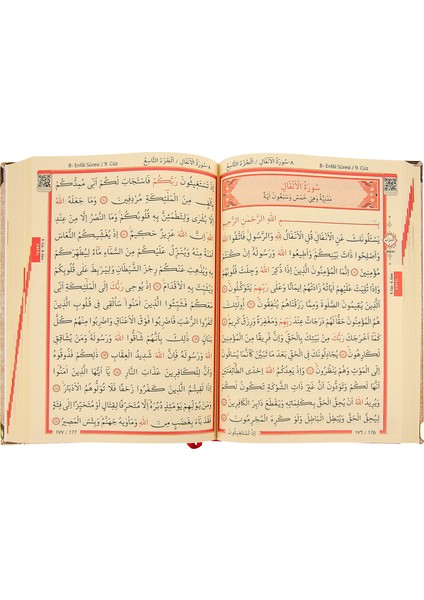 ٨-سُورَةُ الْاَنْفَالِ / اَلْجُزْءُ التَّاسِعُ
8- Enfâl Sûresi / 9. Cüz
سُورَةُ الْاَنْفَالِ
مَدَنِيَّةٌ وَهِيَ خَمْسٌ وَسَبْعُونَ اٰيَةً
بِسْمِ اللّٰهِ الرَّحْمٰنِ الرَّحِيمِ
يَسْـَٔلُونَكَ عَنِ الْاَنْفَالِ قُلِ الْاَنْفَالُ لِلّٰهِ وَالرَّسُولِ فَاتَّقُوا اللّٰهَ
وَاَصْلِحُوا ذَاتَ بَيْنِكُمْ وَاَطِيعُوا اللّٰهَ وَرَسُولَهُٓ اِنْ كُنْتُمْ
مُؤْمِنِينَ ۝ اِنَّمَا الْمُؤْمِنُونَ الَّذِينَ اِذَا ذُكِرَ اللّٰهُ وَجِلَتْ قُلُوبُهُمْ
وَاِذَا تُلِيَتْ عَلَيْهِمْ اٰيَاتُهُ زَادَتْهُمْ اِيمَانًا وَعَلٰى رَبِّهِمْ يَتَوَكَّلُونَ ۝
اَلَّذِينَ يُقِيمُونَ الصَّلٰوةَ وَمِمَّا رَزَقْنَاهُمْ يُنْفِقُونَ ۝ اُولٰٓئِكَ
هُمُ الْمُؤْمِنُونَ حَقًّا لَهُمْ دَرَجَاتٌ عِنْدَ رَبِّهِمْ وَمَغْفِرَةٌ وَرِزْقٌ كَرِيمٌ ۝
كَمَٓا اَخْرَجَكَ رَبُّكَ مِنْ بَيْتِكَ بِالْحَقِّ وَاِنَّ فَرِيقًا مِنَ الْمُؤْمِنِينَ
لَكَارِهُونَ ۝ يُجَادِلُونَكَ فِي الْحَقِّ بَعْدَ مَا تَبَيَّنَ كَاَنَّمَا يُسَاقُونَ
اِلَى الْمَوْتِ وَهُمْ يَنْظُرُونَ ۝ وَاِذْ يَعِدُكُمُ اللّٰهُ اِحْدَى الطَّٓائِفَتَيْنِ
اَنَّهَا لَكُمْ وَتَوَدُّونَ اَنَّ غَيْرَ ذَاتِ الشَّوْكَةِ تَكُونُ لَكُمْ
وَيُرِيدُ اللّٰهُ اَنْ يُحِقَّ الْحَقَّ بِكَلِمَاتِهِ وَيَقْطَعَ دَابِرَ الْكَافِرِينَ ۝
لِيُحِقَّ الْحَقَّ وَيُبْطِلَ الْبَاطِلَ وَلَوْ كَرِهَ الْمُجْرِمُونَ ۝
١٧٦ / 176
اِذْ تَسْتَغِيثُونَ
٨-سُورَةُ الْاَنْفَالِ / اَلْجُزْءُ التَّاسِعُ
8- Enfâl Sûresi / 9. Cüz
اِذْ تَسْتَغِيثُونَ رَبَّكُمْ فَاسْتَجَابَ لَكُمْ اَنِّي مُمِدُّكُمْ
بِاَلْفٍ مِنَ الْمَلٰٓئِكَةِ مُرْدِفِينَ ۝ وَمَا جَعَلَهُ اللّٰهُ
اِلَّا بُشْرٰى وَلِتَطْمَئِنَّ بِهِ قُلُوبُكُمْ وَمَا النَّصْرُ اِلَّا مِنْ عِنْدِ
اللّٰهِ اِنَّ اللّٰهَ عَزِيزٌ حَكِيمٌ ۝ اِذْ يُغَشِّيكُمُ النُّعَاسَ
اَمَنَةً مِنْهُ وَيُنَزِّلُ عَلَيْكُمْ مِنَ السَّمَٓاءِ مَٓاءً لِيُطَهِّرَكُمْ
بِهِ وَيُذْهِبَ عَنْكُمْ رِجْزَ الشَّيْطَانِ وَلِيَرْبِطَ عَلٰى قُلُوبِكُمْ
وَيُثَبِّتَ بِهِ الْاَقْدَامَ ۝ اِذْ يُوحِي رَبُّكَ اِلَى الْمَلٰٓئِكَةِ اَنِّي
مَعَكُمْ فَثَبِّتُوا الَّذِينَ اٰمَنُوا سَاُلْقِي فِي قُلُوبِ الَّذِينَ
كَفَرُوا الرُّعْبَ فَاضْرِبُوا فَوْقَ الْاَعْنَاقِ وَاضْرِبُوا مِنْهُمْ كُلَّ
بَنَانٍ ۝ ذٰلِكَ بِاَنَّهُمْ شَٓاقُّوا اللّٰهَ وَرَسُولَهُ وَمَنْ يُشَاقِقِ
اللّٰهَ وَرَسُولَهُ فَاِنَّ اللّٰهَ شَدِيدُ الْعِقَابِ ۝ ذٰلِكُمْ فَذُوقُوهُ
وَاَنَّ لِلْكَافِرِينَ عَذَابَ النَّارِ ۝ يَٓا اَيُّهَا الَّذِينَ اٰمَنُٓوا
اِذَا لَقِيتُمُ الَّذِينَ كَفَرُوا زَحْفًا فَلَا تُوَلُّوهُمُ الْاَدْبَارَ ۝
وَمَنْ يُوَلِّهِمْ يَوْمَئِذٍ دُبُرَهُ اِلَّا مُتَحَرِّفًا لِقِتَالٍ اَوْ مُتَحَيِّزًا اِلٰى فِئَةٍ
فَقَدْ بَٓاءَ بِغَضَبٍ مِنَ اللّٰهِ وَمَأْوٰيهُ جَهَنَّمُ وَبِئْسَ الْمَصِيرُ ۝
١٧٧ / 177